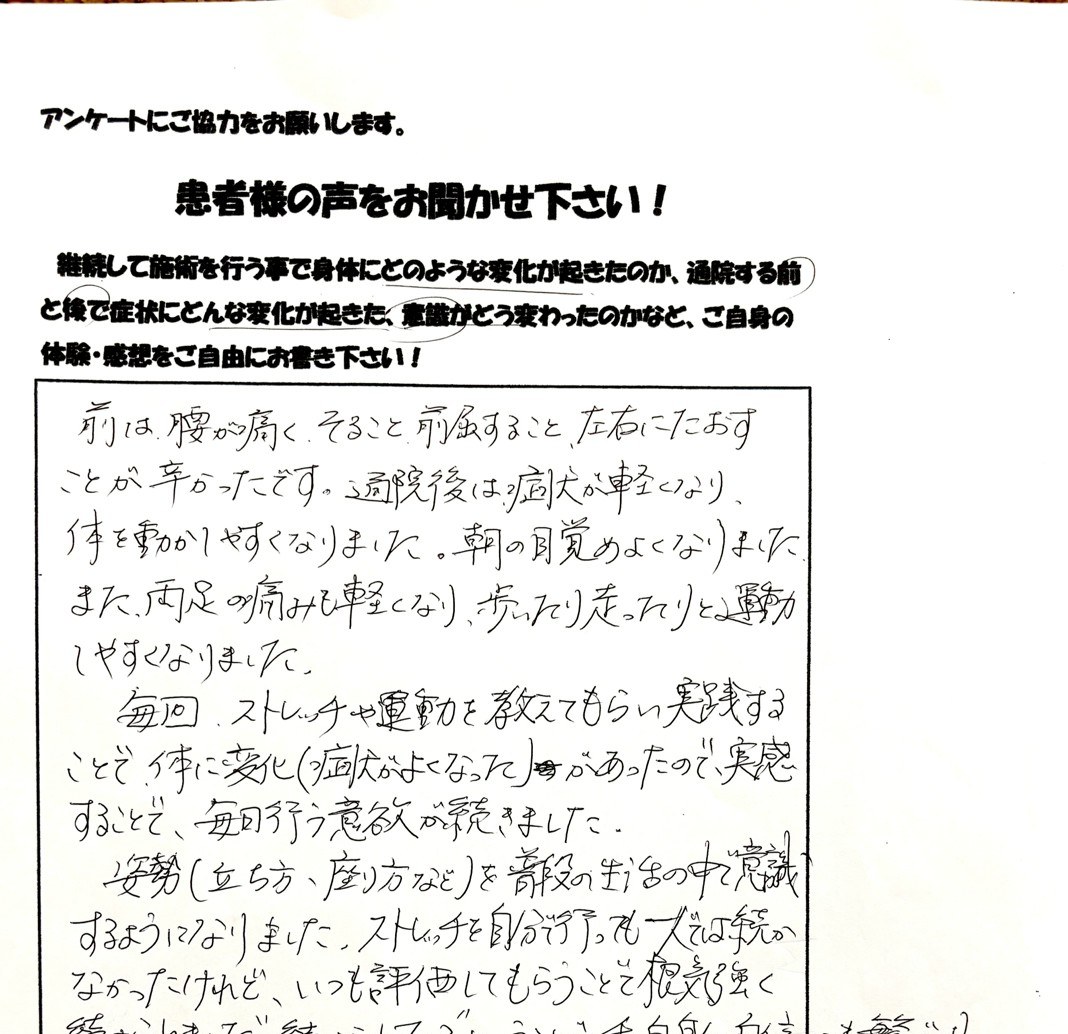 アンケートにご協力をお願いします。
患者様の声をお聞かせ下さい！
継続して施術を行う事で身体にどのような変化が起きたのか、通院する前
と後で症状にどんな変化が起きた、意識がどう変わったのかなど、ご自身の
体験・感想をご自由にお書き下さい！
前は、腰が痛く、そること、前屈すること、左右にたおす
ことが辛かったです。通院後は、症状が軽くなり、
体を動かしやすくなりました。朝の目覚めよくなりました
また、両足の痛みも軽くなり、歩いたり走ったりと運動
しやすくなりました。
毎回、ストレッチや運動を教えてもらい実践する
ことで、体に変化(症状がよくなった)があったので、実感
することで、毎日行う意欲が続きました。
姿勢(立ち方、座り方など)を普段の生活の中で意識
するようになりました。ストレッチを自分で行っても一人では続か
なかったけれど、いつも評価してもらうことで根気強く